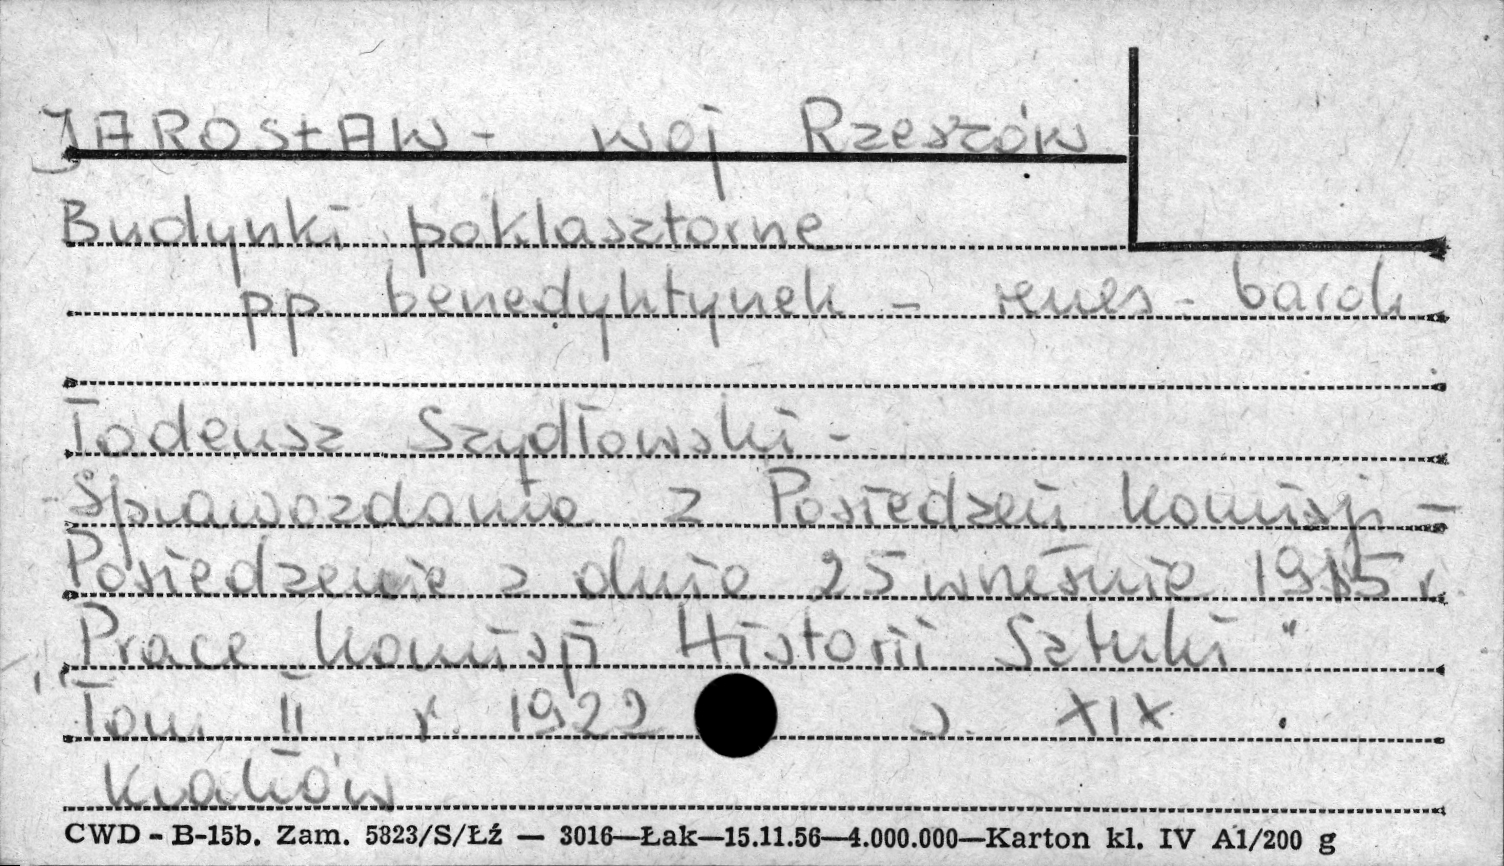 JAROSŁAW - woj Rzeszów
Budynki poklasztorne
pp. benedyktynek - renes - barok
Tadeusz Szydłowski -
Sprawozdania z Posiedzeń Komisji -
Posiedzenie z dnia 25 września 1915 r.
„Prace Komisji Historii Sztuki"
Tom II r. 1922 s. XIX .
Kraków
CWD - B-15b. Zam. 5823/S/Łź — 3016—Łak—15.11.56—4.000.000—Karton kl. IV A1/200 g